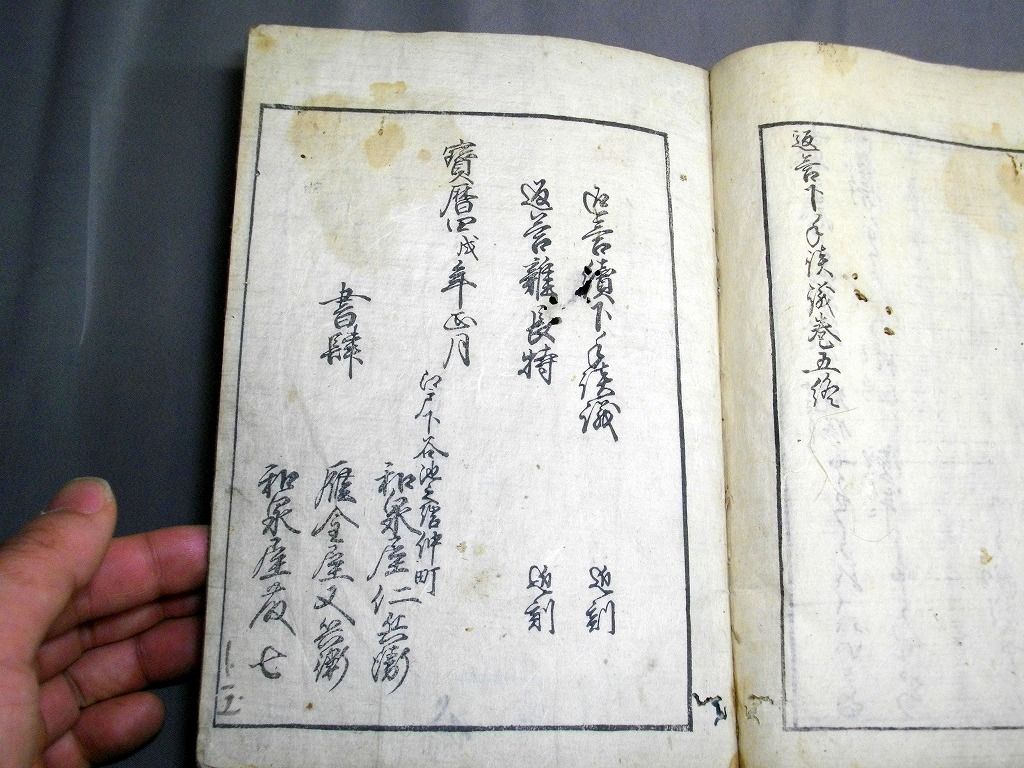 返答下手談議巻五終
返答續下手談議 近刻
返答雜長持 近刻
寶暦四戌年正月
江戸下谷池之端仲町
書肆
和泉屋仁兵衛
雁金屋又兵衛
和泉屋 七